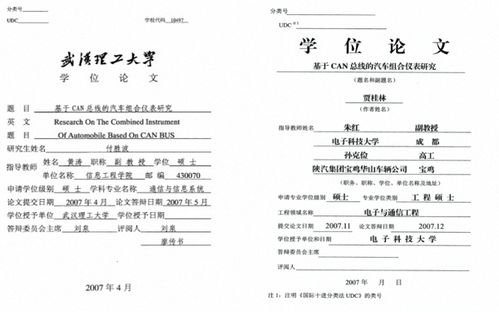 分类号
UDC
学校代码 10497
武汉理工大学
学 位 论 文
题 目 基于CAN总线的汽车组合仪表研究
英 文 Research On The Combined Instrument
题 目 Of Automobile Based On CAN BUS
研究生姓名 付胜波
指导教师 姓名 黄涛 职称 副 教 授 学位 硕 士
单位名称 信息工程学院 邮编 430070
申请学位级别 硕 士 学科专业名称 通信与信息系统
论文提交日期 2007年4月 论文答辩日期 2007年5月
学位授予单位 武汉理工大学 学位授予日期
答辩委员会主席 刘泉 评阅人 刘泉
廖传书
2007年4月
分类号
UDC 注1
学 位 论 文
基于CAN总线的汽车组合仪表研究
(题名和副题名)
贾桂林
(作者姓名)
指导教师姓名 朱红 副教授
电子科技大学 成 都
孙克俭 高工
陕汽集团宝鸡华山车辆公司 宝鸡
(职务、职称、学位、单位名称及地址)
申请专业学位级别 硕士 专业学位类别 工 程 硕 士
工程领域名称 电子与通信工程
提交论文日期 2007.11 论文答辩日期 2007.12
学位授予单位和日期 电 子 科 技 大 学
答辩委员会主席
评阅人
2007年 月 日
注1:注明《国际十进分类法UDC》的类号